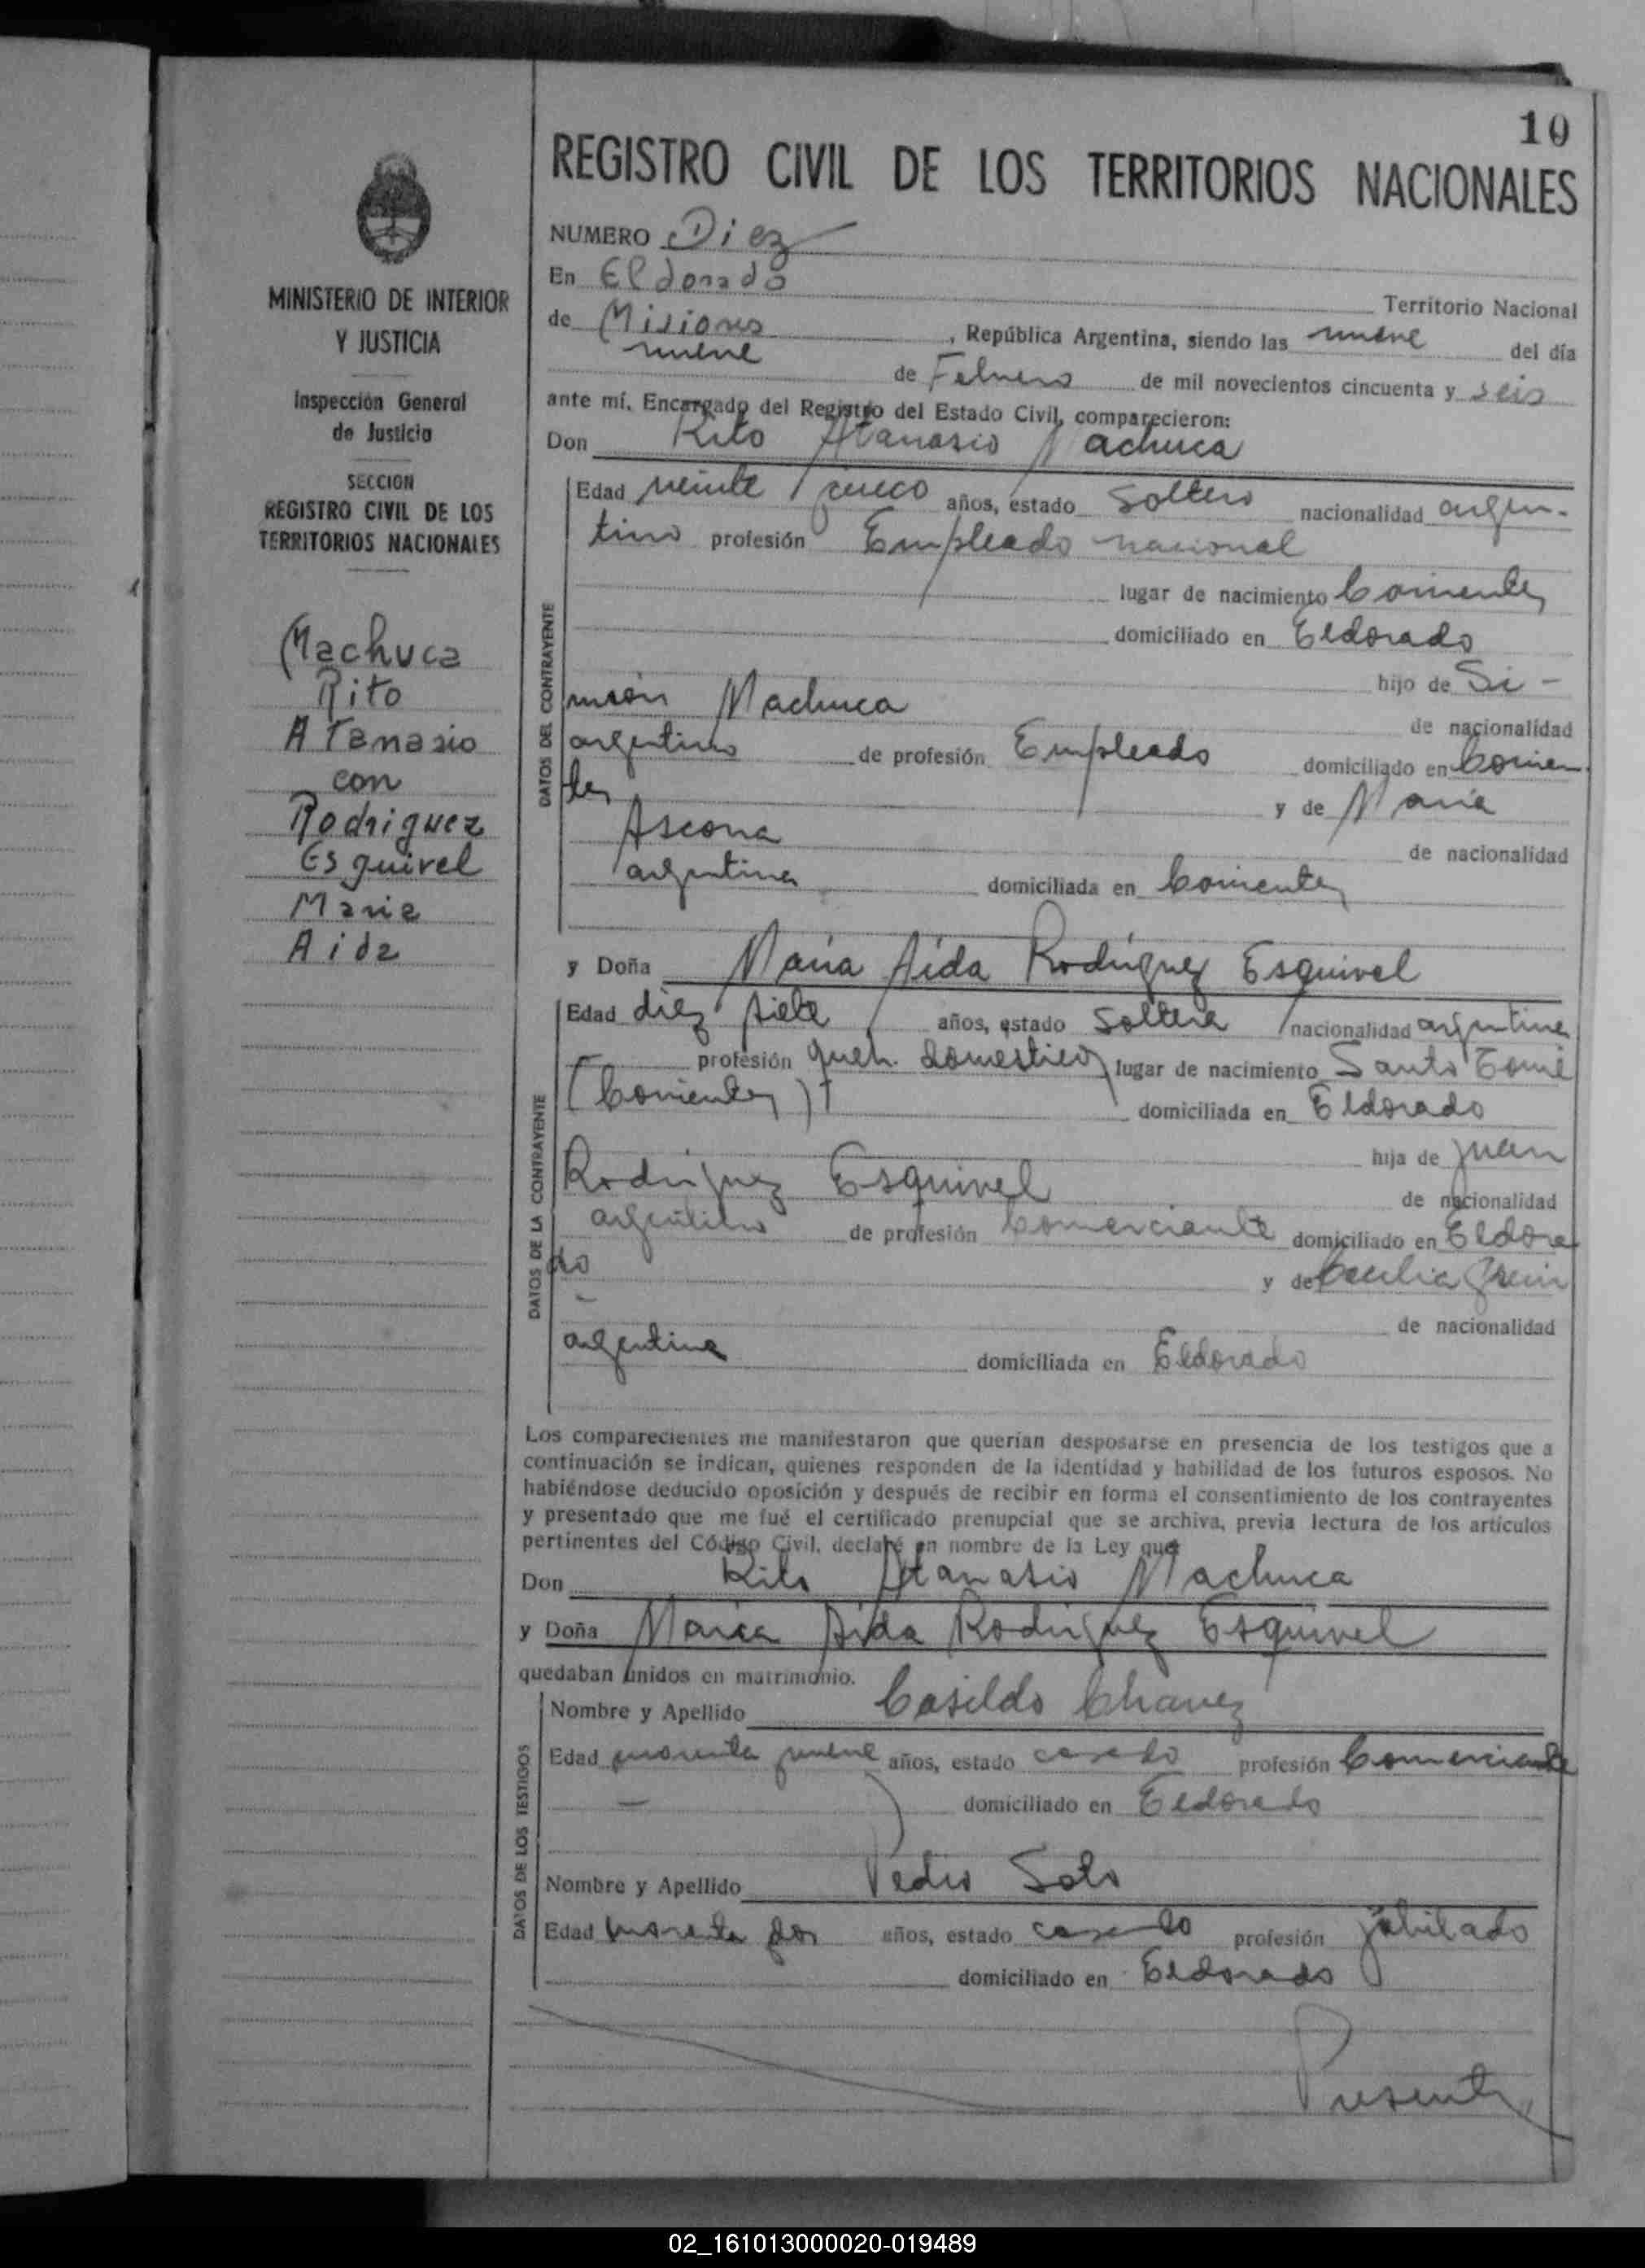 10
REGISTRO CIVIL DE LOS TERRITORIOS NACIONALES
MINISTERIO DE INTERIOR
Y JUSTICIA
Inspección General
de Justicia
SECCION
REGISTRO CIVIL DE LOS
TERRITORIOS NACIONALES
Machuca
Rito
Atanasio
con
Rodriguez
Esquivel
Maria
Aida
NUMERO Diez
En Eldorado Territorio Nacional
de Misiones, República Argentina, siendo las nueve del día
nueve de Febrero de mil novecientos cincuenta y seis
ante mí, Encargado del Registro del Estado Civil, comparecieron:
Don Rito Atanasio Machuca
DATOS DEL CONTRAYENTE
Edad veinte cinco años, estado Soltero nacionalidad argen-
tino profesión Empleado nacional
lugar de nacimiento Corrientes
domiciliado en Eldorado
hijo de Si-
meón Machuca de nacionalidad
argentino de profesión Empleado domiciliado en Corrien
tes y de María
Ascona de nacionalidad
argentina domiciliada en Corrientes
y Doña María Aída Rodríguez Esquivel
DATOS DE LA CONTRAYENTE
Edad diez siete años, estado Soltera nacionalidad argentina
profesión queh. domesticos lugar de nacimiento Santo Tomé
(Corrientes) domiciliada en Eldorado
hija de Juan
Rodríguez Esquivel de nacionalidad
argentino de profesión Comerciante domiciliado en Eldora
do y de Cecilia
de nacionalidad
argentina domiciliada en Eldorado
Los comparecientes me manifestaron que querían desposarse en presencia de los testigos que a
continuación se indican, quienes responden de la identidad y habilidad de los futuros esposos. No
habiéndose deducido oposición y después de recibir en forma el consentimiento de los contrayentes
y presentado que me fué el certificado prenupcial que se archiva, previa lectura de los artículos
pertinentes del Código Civil, declaré en nombre de la Ley que
Don Rito Atanasio Machuca
y Doña María Aida Rodríguez Esquivel
quedaban unidos en matrimonio.
DATOS DE LOS TESTIGOS
Nombre y Apellido Casildo Chavez
Edad cuarenta nueve años, estado casado profesión Comerciante
domiciliado en Eldorado
Nombre y Apellido Pedro Soto
Edad cuarenta dos años, estado casado profesión jubilado
domiciliado en Eldorado
Presentes
02_161013000020-019489